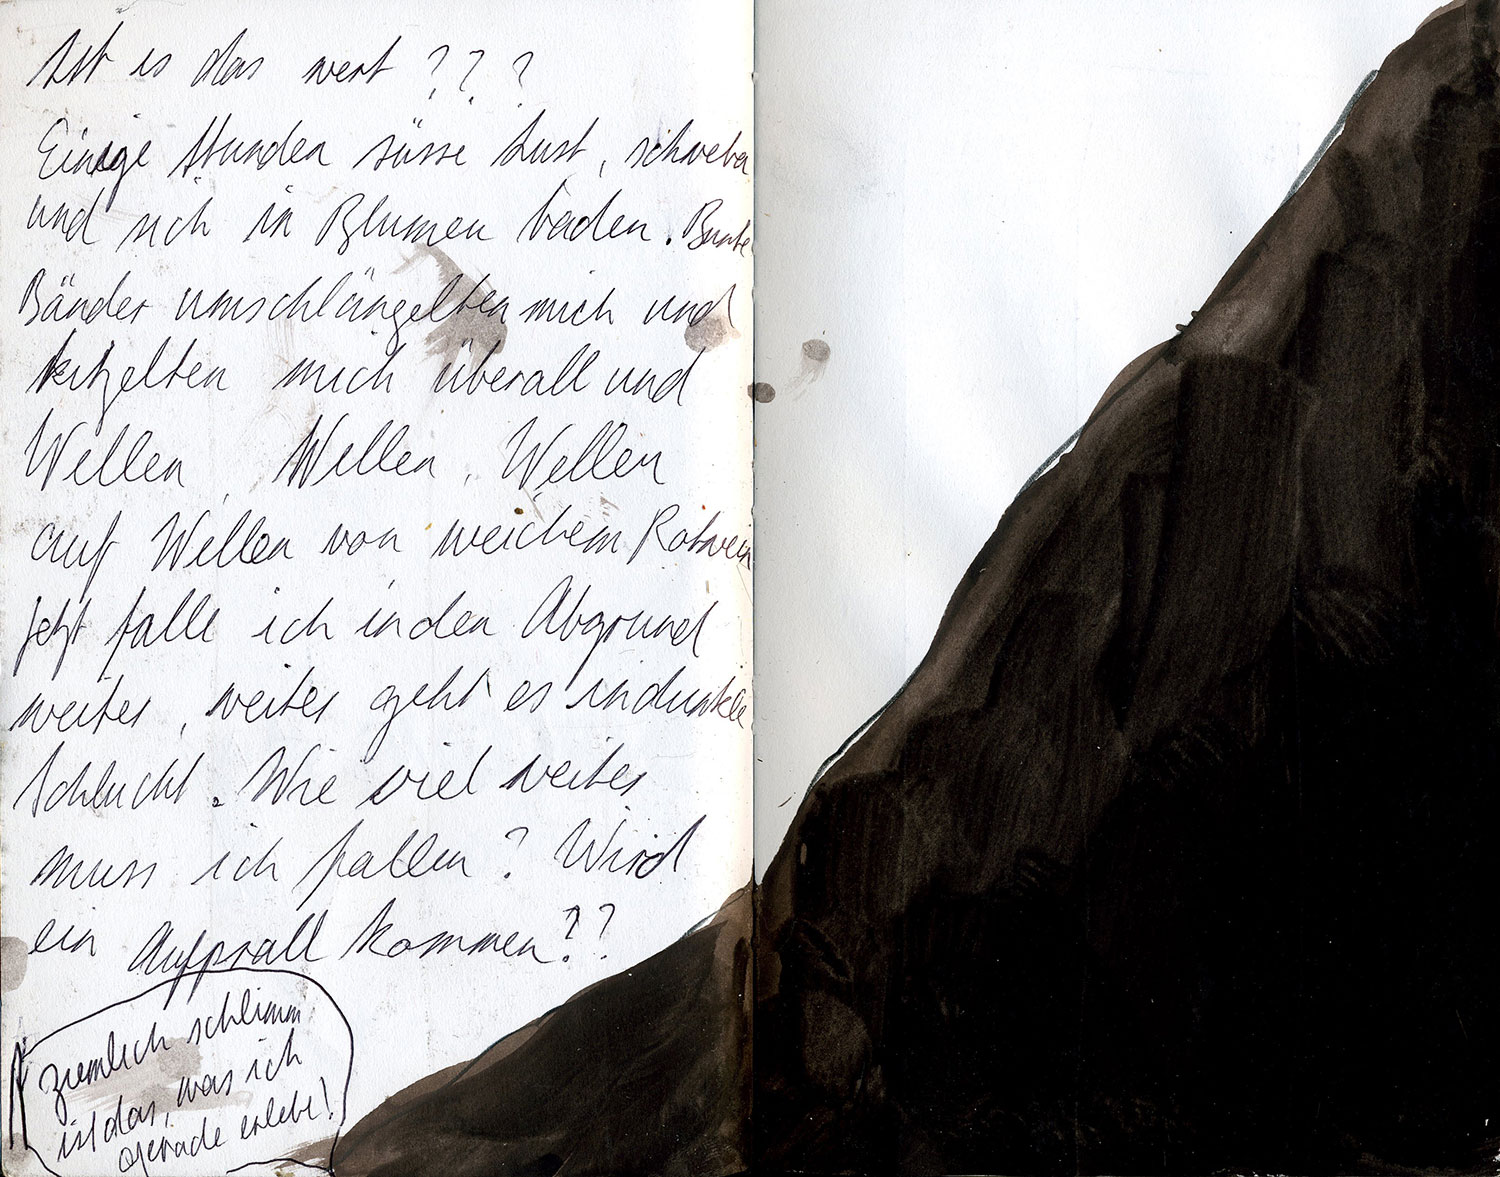 Ist es das wert ? ? ?
Einige Stunden süsse Lust, schweben
und sich in Blumen baden. Bunte
Bänder umschlängelten mich und
kitzelten mich überall und
Wellen, Wellen, Wellen
auf Wellen von weichem Rotwein
Jetzt falle ich in den Abgrund
weiter, weiter geht es in dunkle
Schlucht. Wie viel weiter
muss ich fallen? Wird
ein Aufprall kommen??
ziemlich schlimm
ist das, was ich
gerade erlebe!